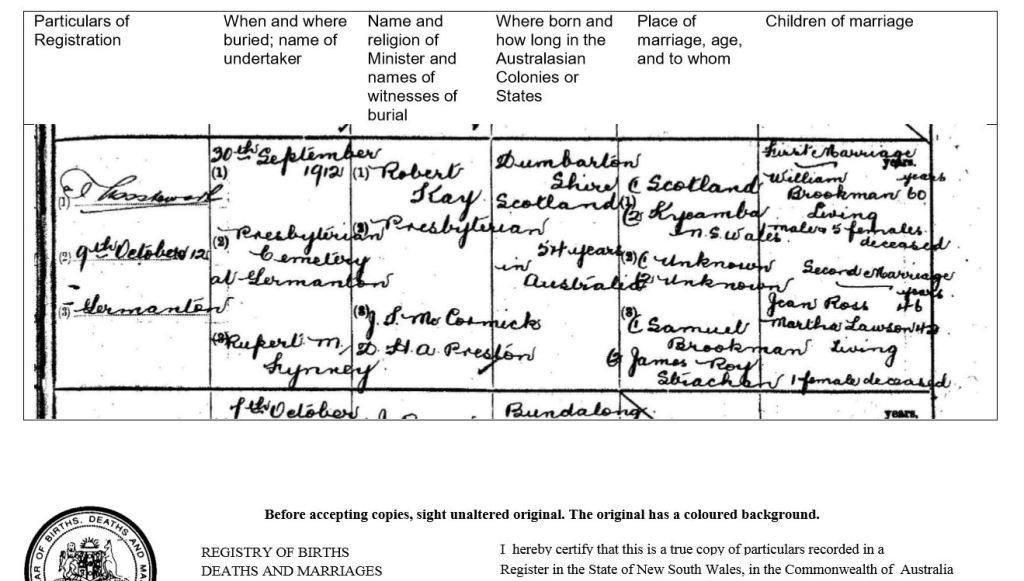 Particulars of Registration
When and where buried; name of undertaker
Name and religion of Minister and names of witnesses of burial
Where born and how long in the Australasian Colonies or States
Place of marriage, age, and to whom
Children of marriage
(1)
(2) 9th October 12
(3) Germanton
30th September
1912
(1)
(2) Presbyterian
Cemetery
at Germanton
(3) Rupert M.
(1) Robert
Kay
(2) Presbyterian
(3) J. S. McCormick
D. H. A. Preston
Dumbarton
Shire
Scotland
54 years
in
Australia
(1)
(1 Scotland
(2 Kyoamba
N.S.Wales
(2) (1 Unknown
(2 Unknown
(3)
(1 Samuel
Brookman
(2 James Roy
Strachan
First Marriage
years.
William years
Brookman 60
Living
males 5 females
deceased
Second Marriage
years.
Jean Ross 46
Martha Lawson 42
Living
1 female deceased
7th October
Bundalong
years.
REGISTRAR OF BIRTHS, DEATHS AND
Before accepting copies, sight unaltered original. The original has a coloured background.
REGISTRY OF BIRTHS
DEATHS AND MARRIAGES
I hereby certify that this is a true copy of particulars recorded in a
Register in the State of New South Wales, in the Commonwealth of Australia